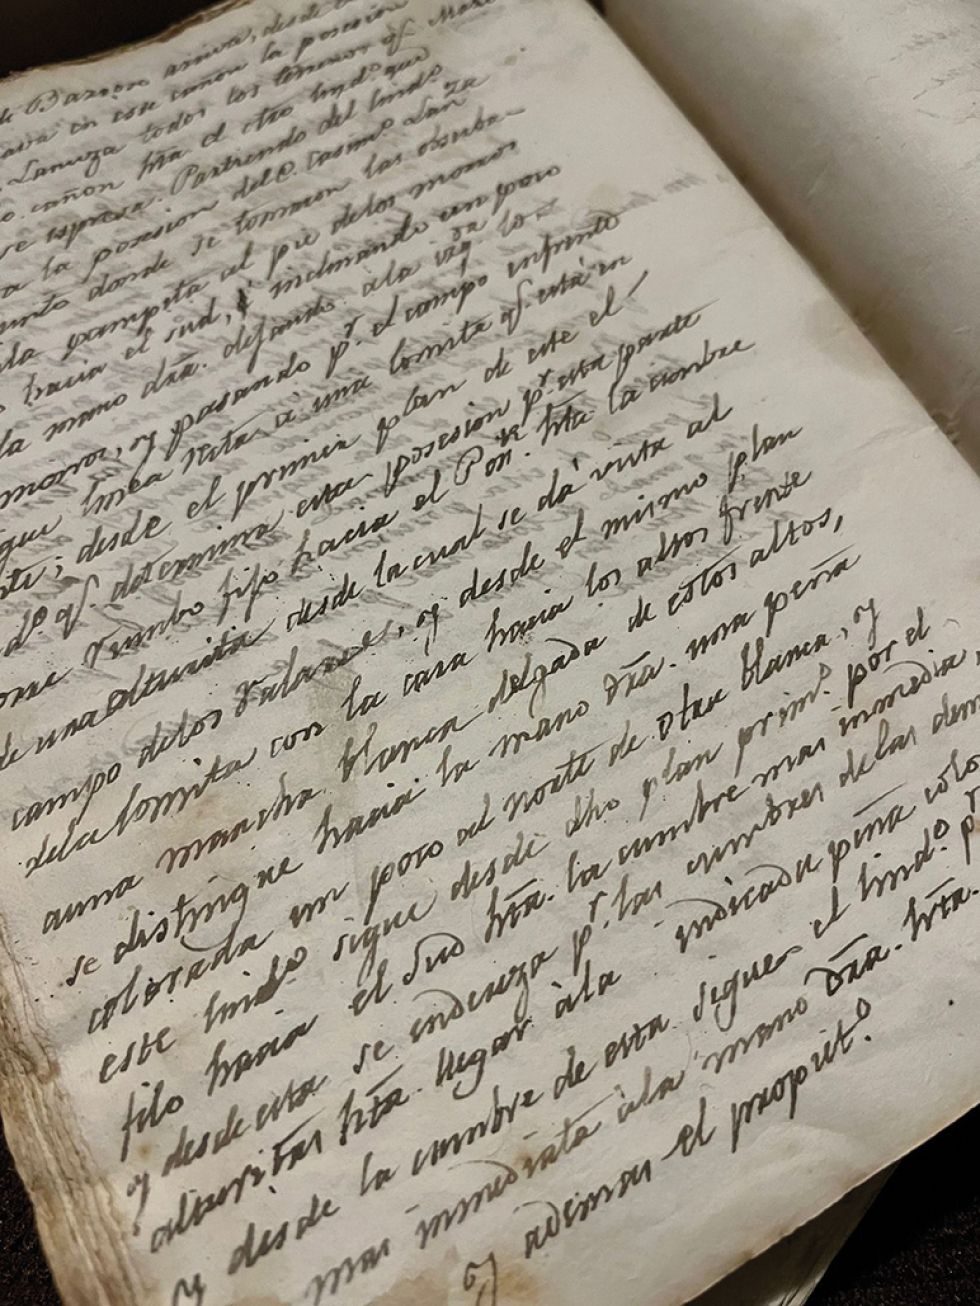 de Barron arriva, desde
en este cañon la posesion
Lanuza todos los terrenos qe.
cañon hta. el otro lindo. que
se espresa. Partiendo del lindo.
a la posesion del C. Casimo. Lanuza
punto donde se tomaron las observa-
la campita al pie de los morros
hacia el sud, é inclinando un poco
la mano dra. dejando ala izqda. lo
morros, y pasando pr. el campo infrente
linea reta a una lomita qe. está en
desde el primer plan de este el
do. qe. determina esta posesion pr. esta parte
rumbo fijo hacia el Ponte. hta. la cumbre
de una alturita desde la cual se dá vista al
campo delos Valances, y desde el mismo plan
dela lomita con la cara hacia los altos frente
auna mancha blanca delgada de estos altos,
se distingue hacia la mano dra. una peña
colorada un poco al norte de otra blanca, y
este lindo sigue desde dho plan primo. por el
filo hacia el Sud hta. la cumbre mas inmedia
y desde esta se endereza pr. las cumbres delas dem
alturitas hta. llegar àla indicada peña colo
y desde la cumbre de esta sigue el lindo. pr.
mas inmediata àla mano dra. hta.
y ademas el proposito.